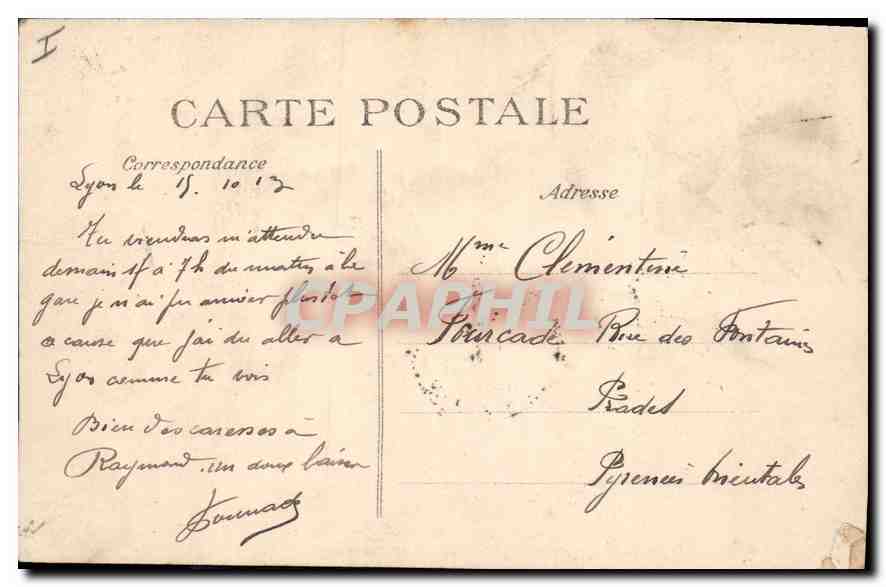 I
CARTE POSTALE
Correspondance
Lyon le 15. 10 13
Tu viendras m'attendre
demain à 7h du matin à la
gare je n'ai pu arriver plus tôt
a cause que j'ai du aller a
Lyon comme tu vois
Bien des caresses à
Raymond un doux baiser
Adresse
Mme Clémentine
Fourcade Rue des Fontaines
Prades
Pyrenées Orientales
CPAPHIL